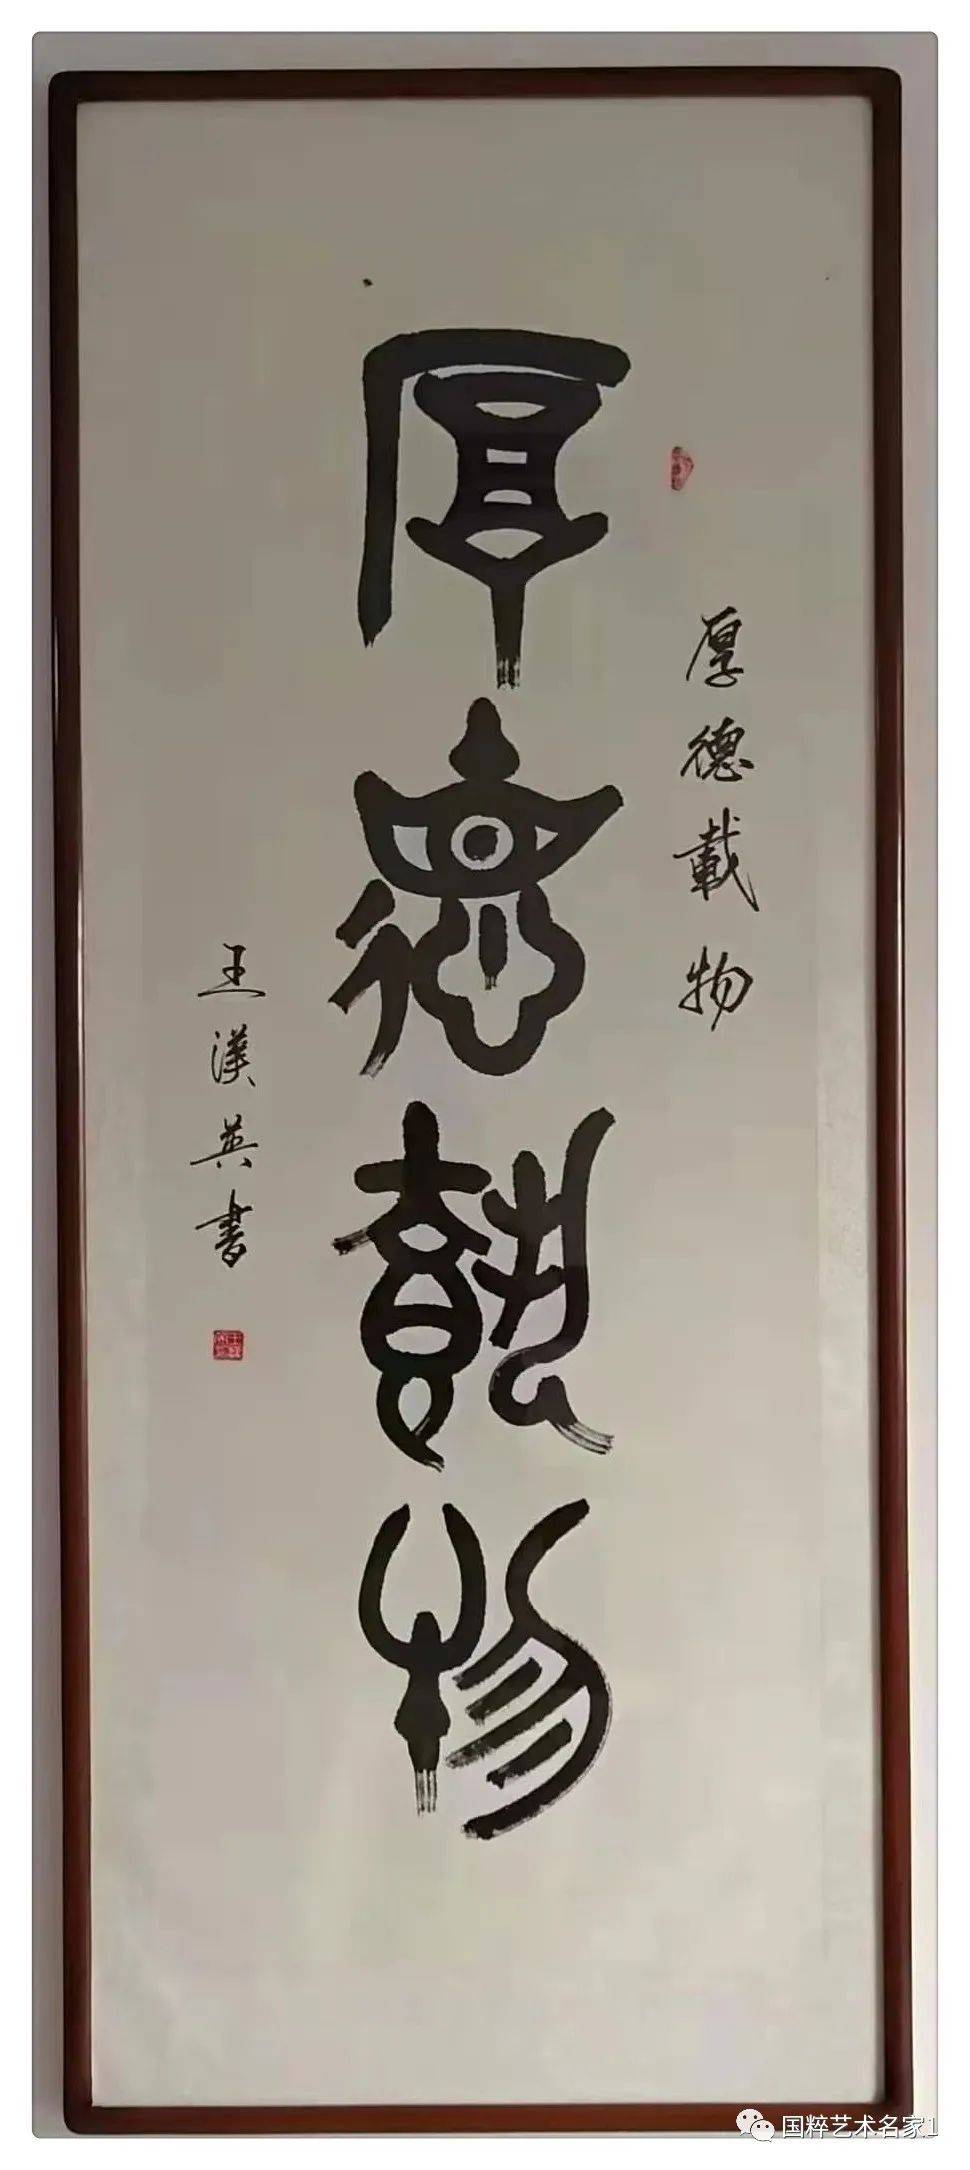 厚德載物
厚德載物
王漢英書
国粹艺术名家1